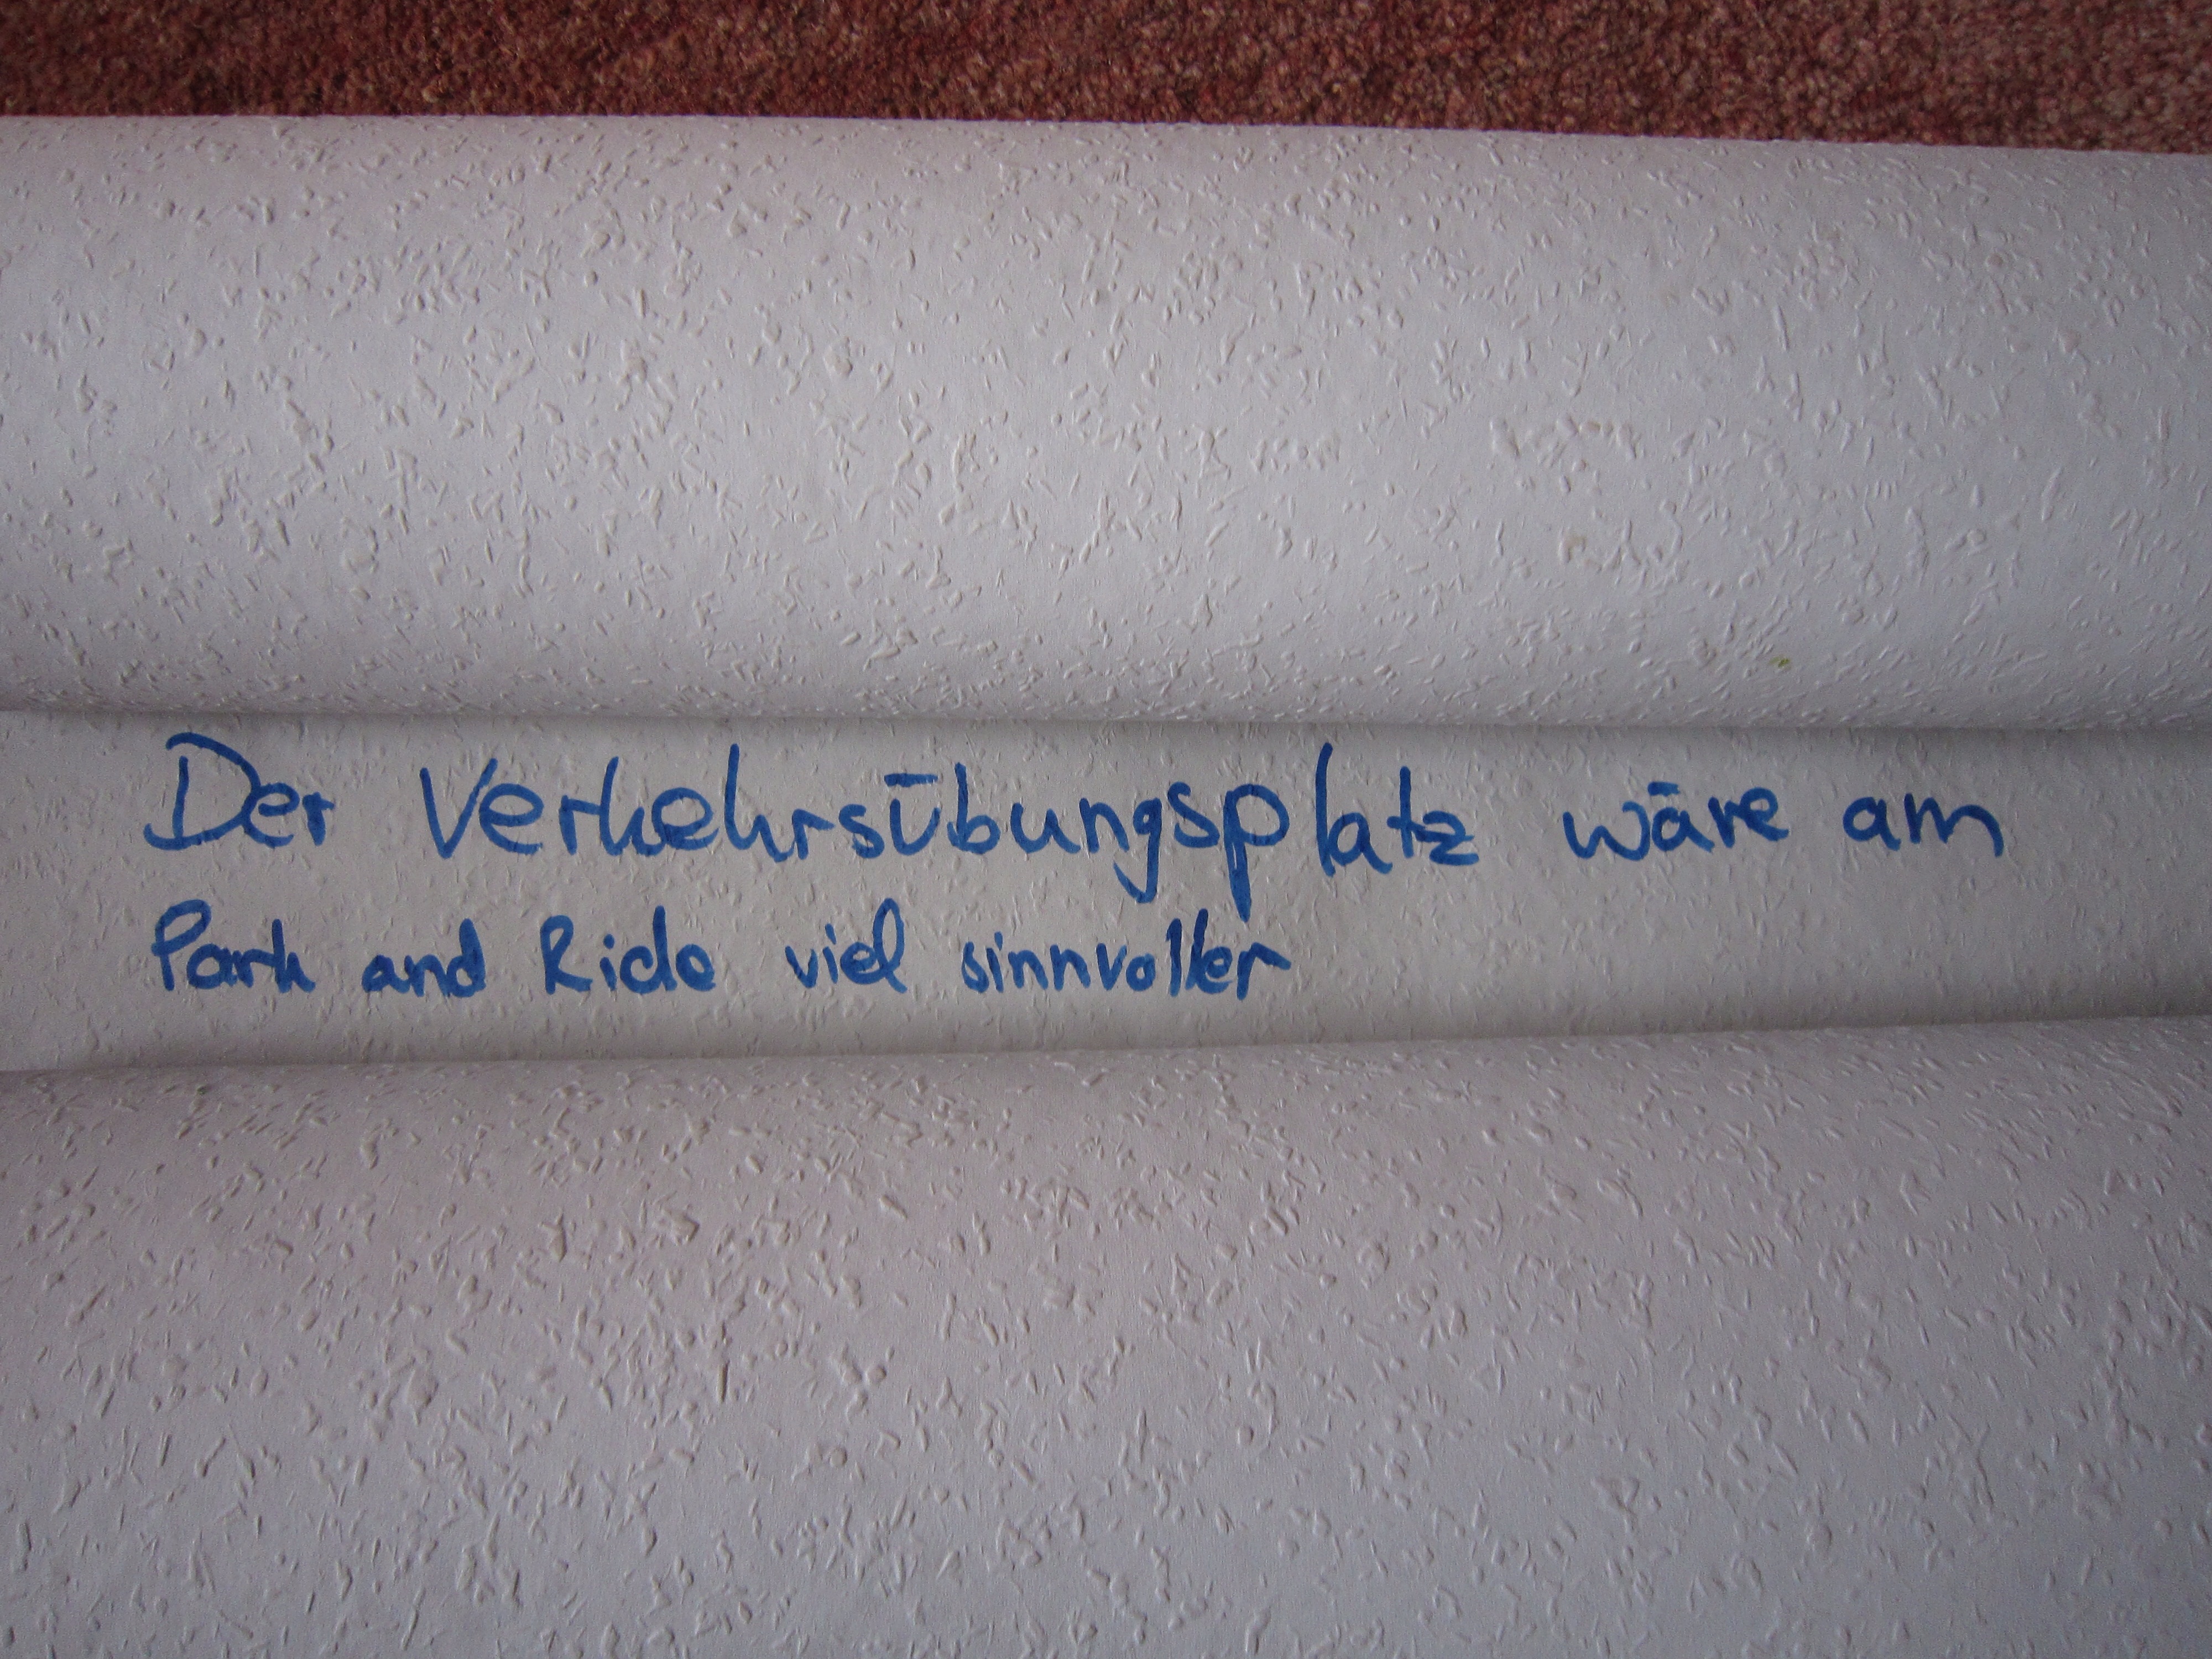 Der Verkehrsübungsplatz wäre am
Park and Ride viel sinnvoller